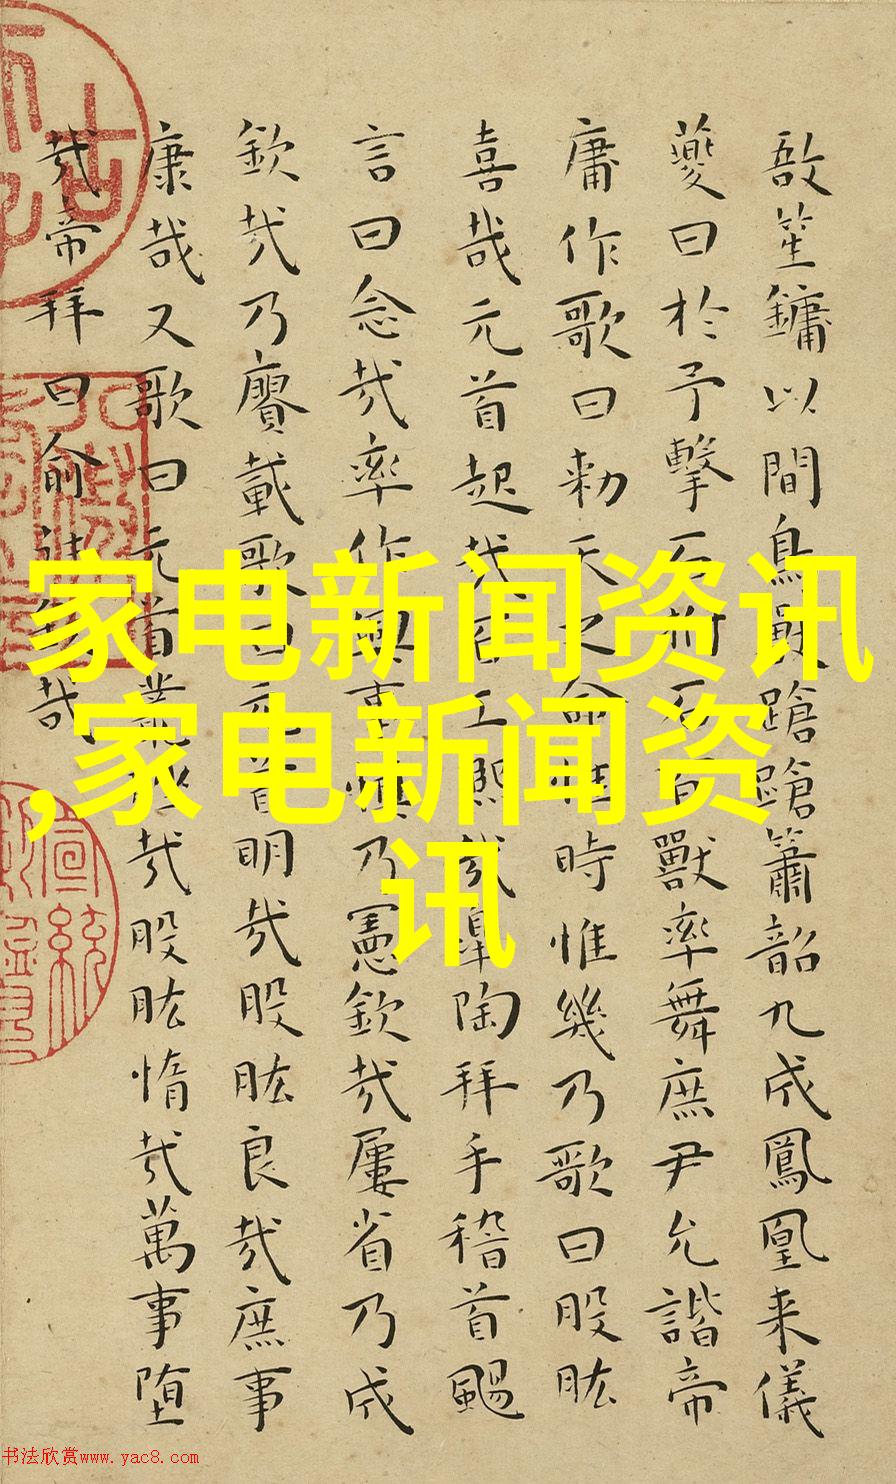 敔笙鏞以間鳥獸蹌蹌簫韶九成鳳凰来儀
夔曰於予擊石拊石百獸率舞庶尹允諧帝
庸作歌曰勑天之命惟時惟幾乃歌曰股肱
喜哉元首起哉百工熙哉皐陶拜手稽首颺
言曰念哉率作興事慎乃憲欽哉屢省乃成
欽哉乃賡載歌曰元首明哉股肱良哉庶事
康哉又歌曰元首叢脞哉股肱惰哉萬事堕
哉帝拜曰俞往欽哉
家电新闻资讯
,家电新闻资
讯
宣統
书法欣赏www.yac8.com